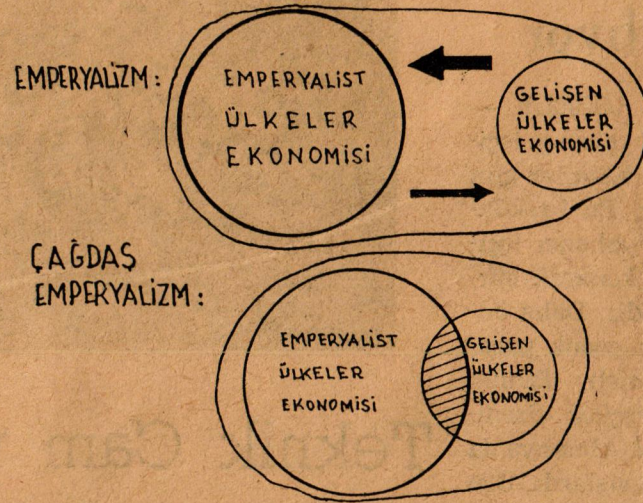 EMPERYALİZM:
EMPERYALİST
ÜLKELER
EKONOMİSİ
GELİŞEN
ÜLKELER
EKONOMİSİ
ÇAĞDAŞ
EMPERYALİZM:
EMPERYALİST
ÜLKELER
EKONOMİSİ
GELİŞEN
ÜLKELER
EKONOMİSİ